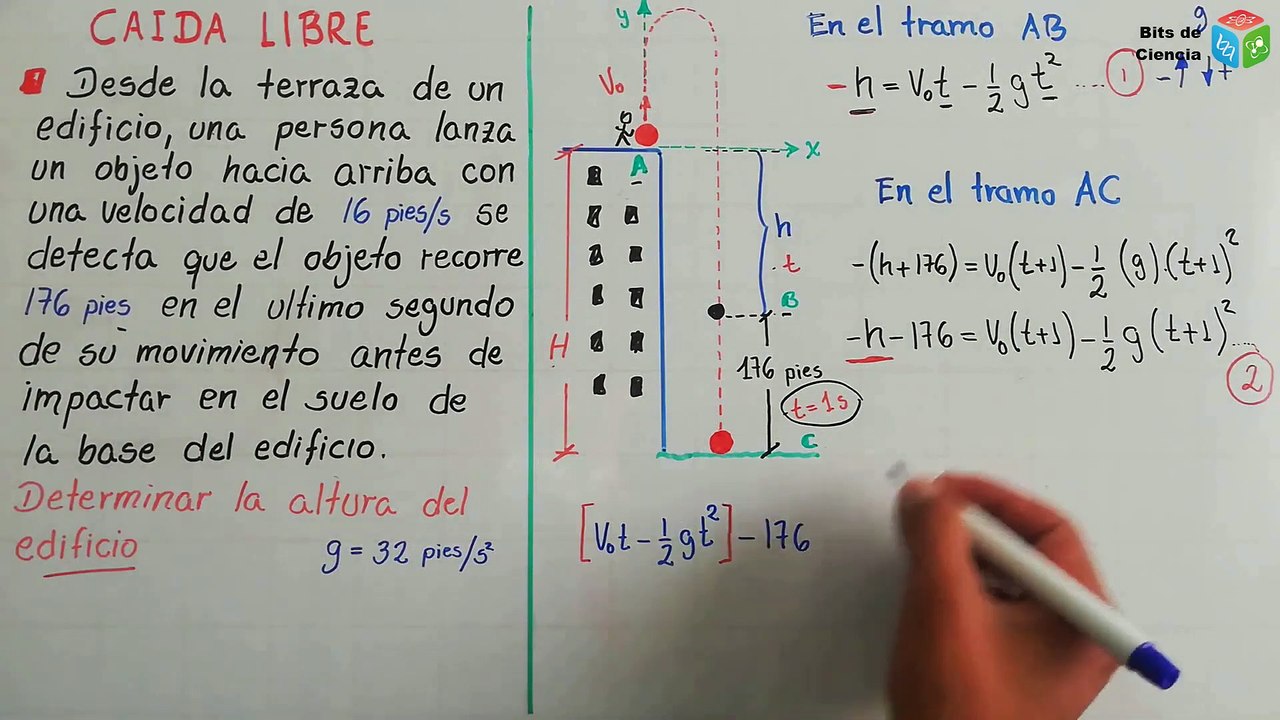 CAIDA LIBRE
Desde la terraza de un
edificio, una persona lanza
un objeto hacia arriba con
una velocidad de 16 pies/s se
detecta que el objeto recorre
176 pies en el ultimo segundo
de su movimiento antes de
impactar en el suelo de
la base del edificio.
Determinar la altura del
edificio
g = 32 pies/s²
y
V₀
A
x
h
t
B
H
176 pies
t=1s
C
[V₀t - 1/2 gt²] - 176
En el tramo AB
-h = V₀t - 1/2 gt² .... 1
- ↑ ↓ +
g
Bits de
Ciencia
En el tramo AC
-(h+176) = V₀(t+1) - 1/2 (g).(t+1)²
-h - 176 = V₀(t+1) - 1/2 g (t+1)² ....
2